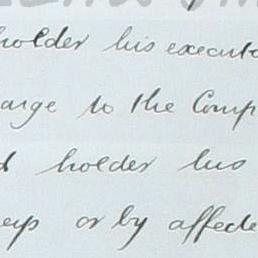 holder his executo
arge to the Comp
d holder his
or by affecte